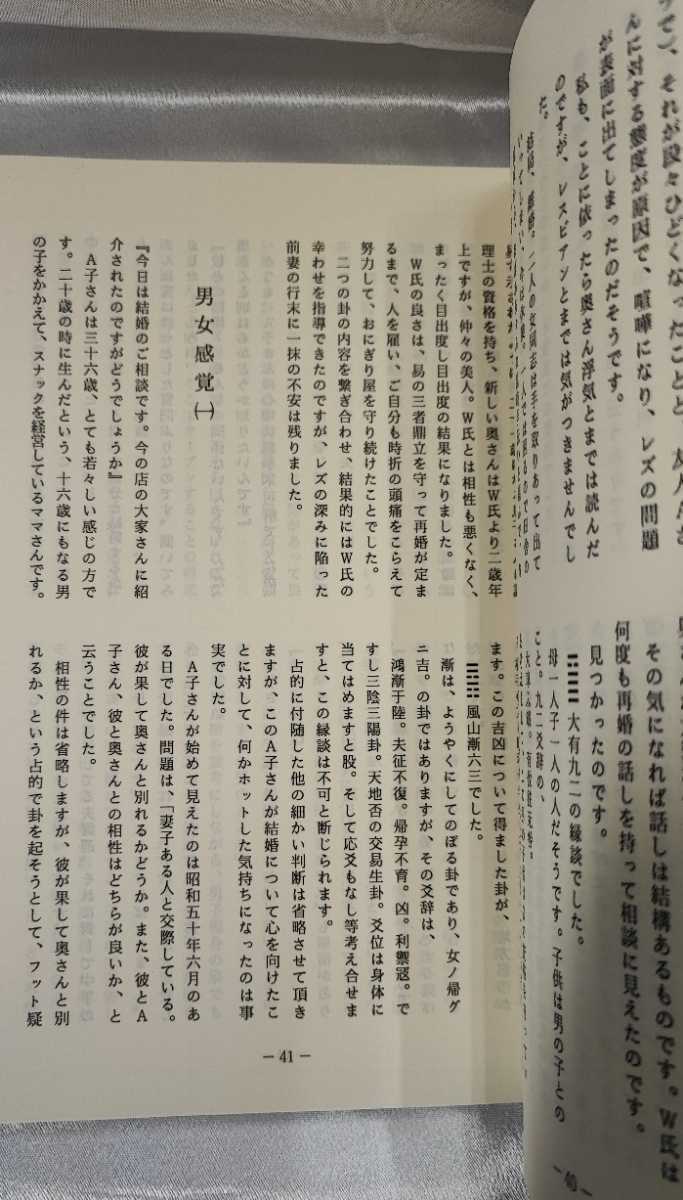 が表面に出てしまったのだそうです。
私も、ことに依ったら奥さん浮気とまでは読んだ
のですが、レスビアンとまでは気がつきませんでし
た。
んに対する態度が原因で、喧嘩になり、レズの問題
その気になれば話しは結構あるものです。W氏は
何度も再婚の話しを持って相談に見えたのです。
見つかったのです。
大有九二の縁談でした。
母一人子一人の人だそうです。子供は男の子との
こと。九二爻辞の、
― 40 ―
理士の資格を持ち、新しい奥さんはW氏より二歳年
上ですが、仲々の美人。W氏とは相性も悪くなく、
まったく目出度し目出度の結果になりました。
W氏の良さは、易の三者鼎立を守って再婚が定ま
るまで、人を雇い、ご自分も時折の頭痛をこらえて
努力して、おにぎり屋を守り続けたことでした。
二つの卦の内容を繋ぎ合わせ、結果的にはW氏の
幸わせを指導できたのですが、レズの深みに陥った
前妻の行末に一抹の不安は残りました。
男女感覚㈠
『今日は結婚のご相談です。今の店の大家さんに紹
介されたのですがどうでしょうか』
A子さんは三十六歳、とても若々しい感じの方で
す。二十歳の時に生んだという、十六歳にもなる男
の子をかかえて、スナックを経営しているママさんです。
ます。この吉凶について得ました卦が、
風山漸六三でした。
漸は、ようやくにしてのぼる卦であり、女ノ帰グ
ニ吉。の卦ではありますが、その爻辞は、
鴻漸于陸。夫征不復。帰孕不育。凶。利禦寇。で
すし三陰三陽卦。天地否の交易生卦。爻位は身体に
当てはめますと股。そして応爻もなし等考え合せま
すと、この縁談は不可と断じられます。
占的に付随した他の細かい判断は省略させて頂き
ますが、このA子さんが結婚について心を向けたこ
とに対して、何かホットした気持ちになったのは事
実でした。
A子さんが始めて見えたのは昭和五十年六月のあ
る日でした。問題は、「妻子ある人と交際している。
彼が果して奥さんと別れるかどうか。また、彼とA
子さん、彼と奥さんとの相性はどちらが良いか、と
云うことでした。
相性の件は省略しますが、彼が果して奥さんと別
れるか、という占的で卦を起そうとして、フット疑
― 41 ―